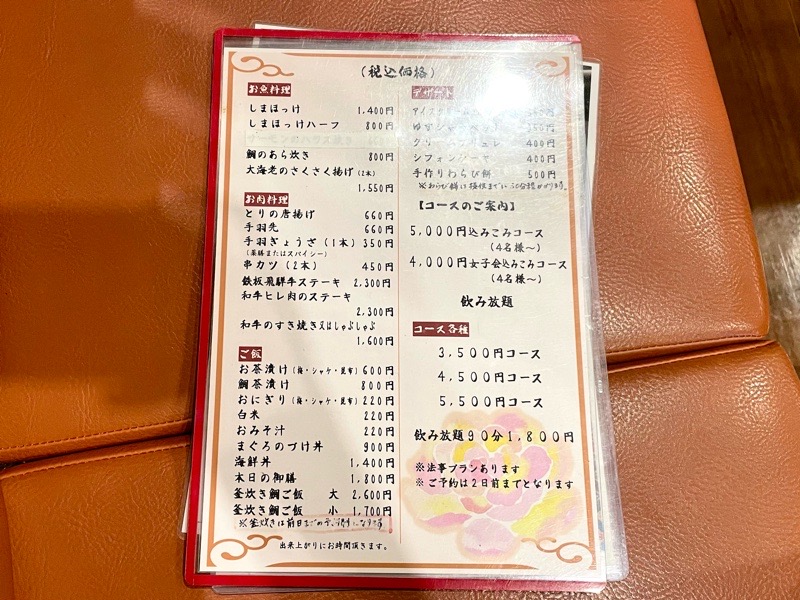 (税込価格)
お魚料理
しまほっけ 1,400円
しまほっけハーフ 800円
鯛のあら炊き 800円
大海老のさくさく揚げ(2本)
1,550円
お肉料理
とりの唐揚げ 660円
手羽先 660円
手羽ぎょうざ(1本) 350円
(薬膳またはスパイシー)
串カツ(2本) 450円
鉄板飛騨牛ステーキ 2,300円
和牛ヒレ肉のステーキ
2,300円
和牛のすき焼き又はしゃぶしゃぶ
1,600円
ご飯
お茶漬け(梅・シャケ・昆布) 600円
鯛茶漬け 800円
おにぎり(梅・シャケ・昆布) 220円
白米 220円
おみそ汁 220円
まぐろのづけ丼 900円
海鮮丼 1,400円
本日の御膳 1,800円
釜炊き鯛ご飯 大 2,600円
釜炊き鯛ご飯 小 1,700円
※釜炊きは前日までの予約制になります
出来上がりにお時間頂きます。
デザート
アイス
ゆず
400円
シフォンケーキ 400円
手作りわらび餅 500円
【コースのご案内】
5,000円込みこみコース
(4名様〜)
4,000円女子会込みこみコース
(4名様〜)
飲み放題
コース各種
3,500円コース
4,500円コース
5,500円コース
飲み放題90分1,800円
※法事プランあります
※ご予約は2日前までとなります